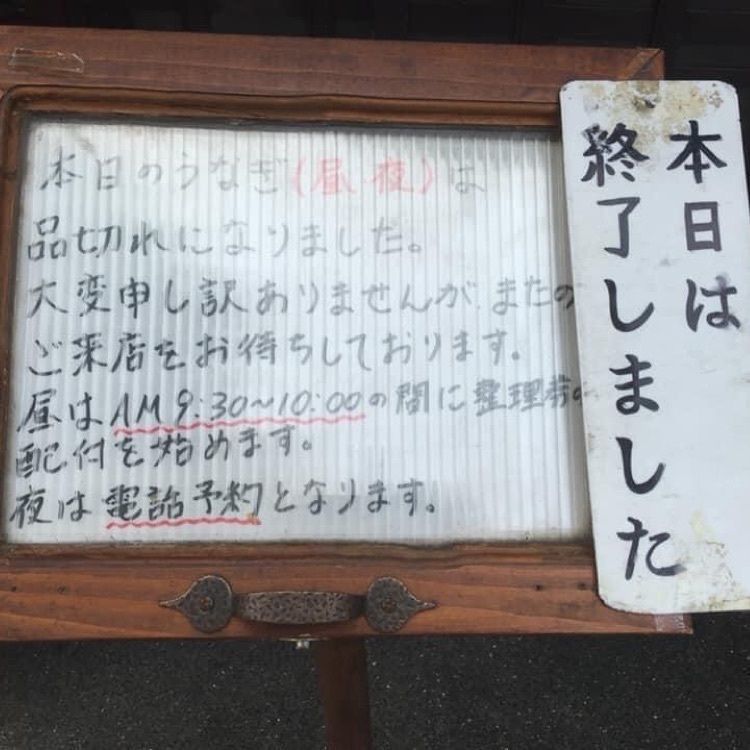 本日のうなぎ(昼夜)は
品切れになりました。
大変申し訳ありませんが、またの
ご来店をお待ちしております。
昼はAM9:30~10:00の間に整理券の
配付を始めます。
夜は電話予約となります。
本日は
終了しました